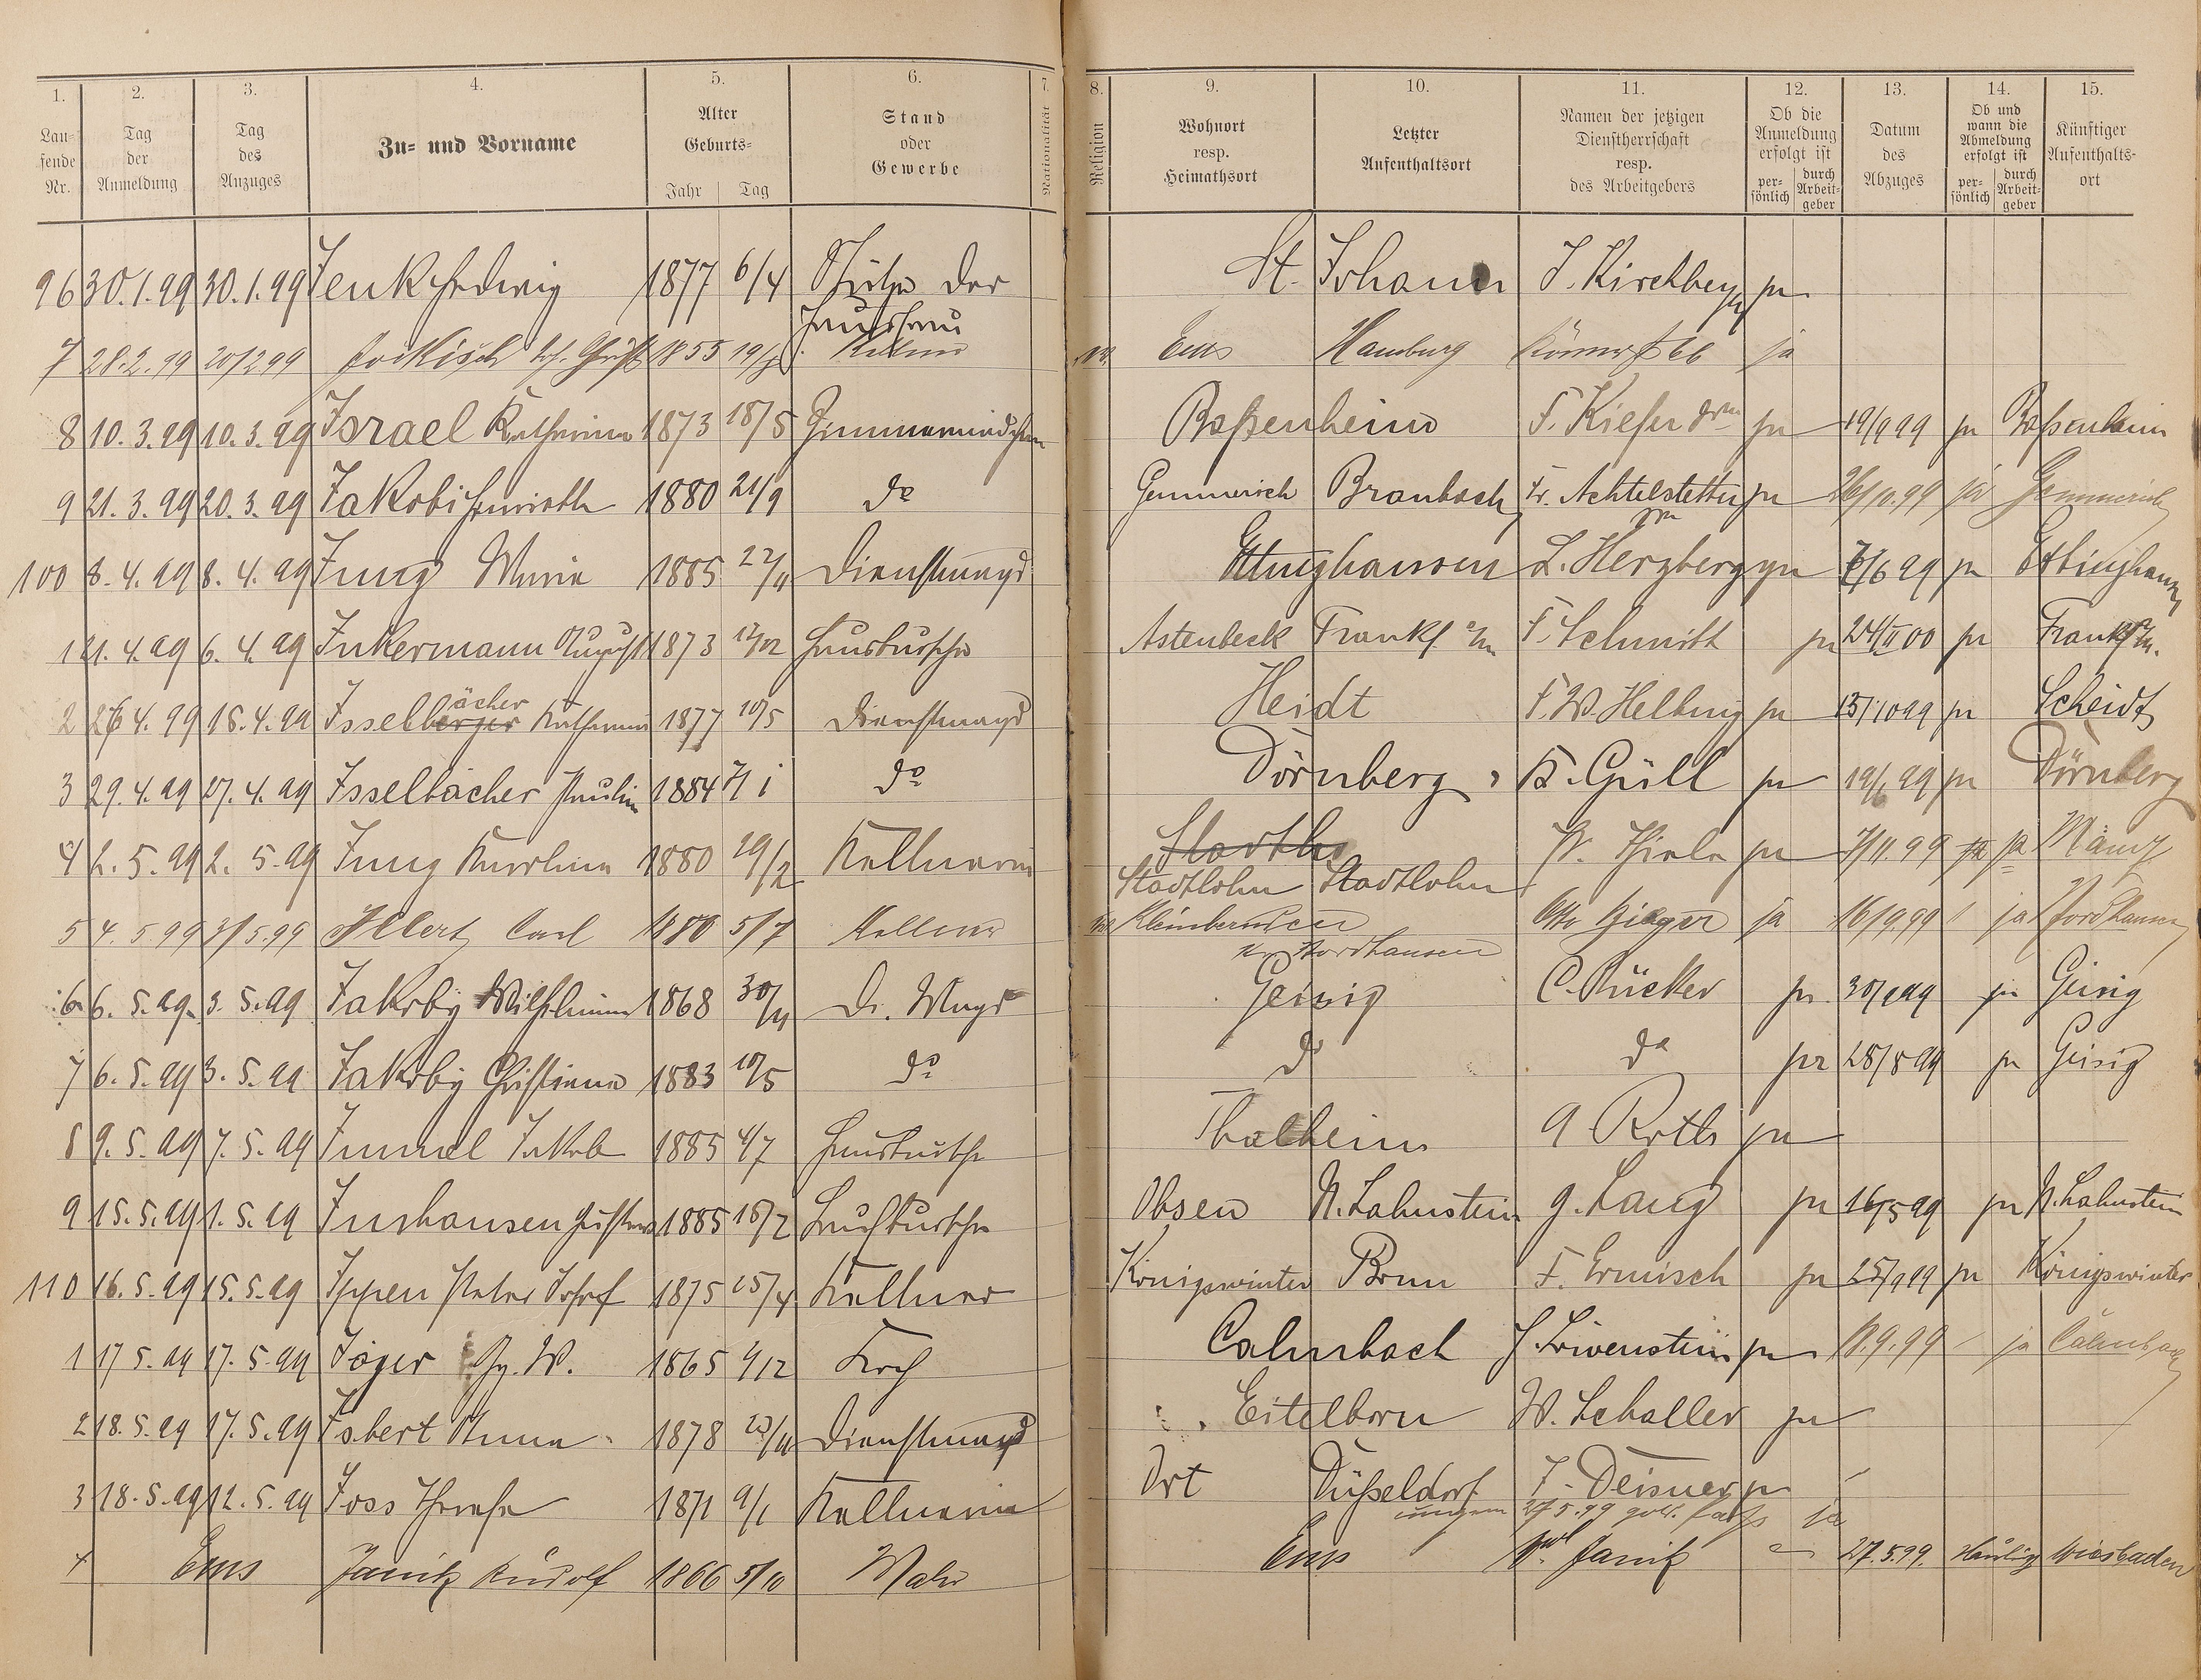 1. 2. 3. 4. 5. 6. 7. 8. 9. 10. 11. 12. 13. 14. 15.
Lau-
fende
Nr.
Tag
der
Anmeldung
Tag
des
Anzuges
Zu- und Vorname
Alter
Geburts-
Jahr Tag
Stand
oder
Gewerbe
Nationalität
Religion
Wohnort
resp.
Heimathsort
Letzter
Aufenthaltsort
Namen der jetzigen
Dienstherrschaft
resp.
des Arbeitgebers
Ob die
Anmeldung
erfolgt ist
per-
sönlich
durch
Arbeit-
geber
Datum
des
Abzuges
Ob und
wann die
Abmeldung
erfolgt ist
per-
sönlich
durch
Arbeit-
geber
Künftiger
Aufenthalts-
ort
96 30.1.99 30.1.99 Jenk Hedwig 1877 6/4 Stütze der Hausfrau St. Johann J. Kirchberger ja
7 28.2.99 20/2 99 1855 Ems Hamburg 66 ja
8 10.3.99 10.3.99 Israel Katharina 1873 18/5 Zimmermädchen Baßenheim F. Kiefer ja 19/9 99 ja Baßenheim
9 21.3.99 20.3.99 Jakobi Henriette 1880 21/9 do Gemmerich Braubach Fr. Achtelstetter ja 26/10.99 ja Gemmerich
100 8.4.99 8.4.99 Jung Maria 1885 22/11 Dienstmagd Ettinghausen L. Herzberg ja 7/6 99 ja Ettinghausen
1 21.4.99 6.4.99 Inkermann August 1873 Hausbursche Astenbeck Frankf. a/m F. Schmitt ja 24/II 00 ja Frankf a/m.
2 26 4.99 15.4.99 Isselbächer Katharina 1877 10/5 Dienstmagd Heidt F.W. Helbing ja 15/10 99 ja Scheidt
3 29.4.99 27.4.99 Isselbächer Paulin 1884 7/1 do Dörnberg K. Güll ja 19/6 99 ja Dörnberg
4 2.5.99 2.5.99 Jung Karolina 1880 29/2 Kellnerin Stadtlo
Stadtlohn Stadtlohn W. Thiele ja 7/11.99 ja ja Mainz
5 4.5.99 3/5.99 Illert Carl 1880 5/7 Kellner Otto ja 16/9.99 ja Nordhausen
n. Nordhausen
6 6.5.99 3.5.99 Jakoby Wilhelmine 1868 30/11 Di. Magd Geisig C. Rücker ja 30/9 99 ja Geisig
7 6.5.99 3.5.99 Jakoby Christiane 1883 10/5 do do do ja 28/8 99 ja Geisig
8 9.5.99 7.5.99 Immel Jakob 1885 4/7 Hausbursche Thalheim A Roth ja
9 15.5.99 1.5.99 Inshausen Gustav 1885 18/2 Laufbursche Olsen N. Lahnstein G. Lang ja 16/5 99 ja N. Lahnstein
110 16.5.99 15.5.99 Ippen Peter Josef 1875 25/4 Kellner Königswinter Bonn F. Ermisch ja 25/9 99 ja Königswinter
1 17 5.99 17.5.99 Jäger Gg. W. 1865 9/12 Koch Calmbach J. Löwenstein ja 18.9.99 ja Calmbach
2 18.5.99 17.5.99 Isbert Anna 1878 Dienstmagd Eitelborn W. Schaller ja
3 18.5.99 12.5.99 Joss Therese 1871 9/1 Kellnerin Ort Düßeldorf F. Deisner ja
27 5.99 ja
4 Ems Janik Rudolf 1866 5/10 Maler Ems Janik 27.5.99. Wiesbaden